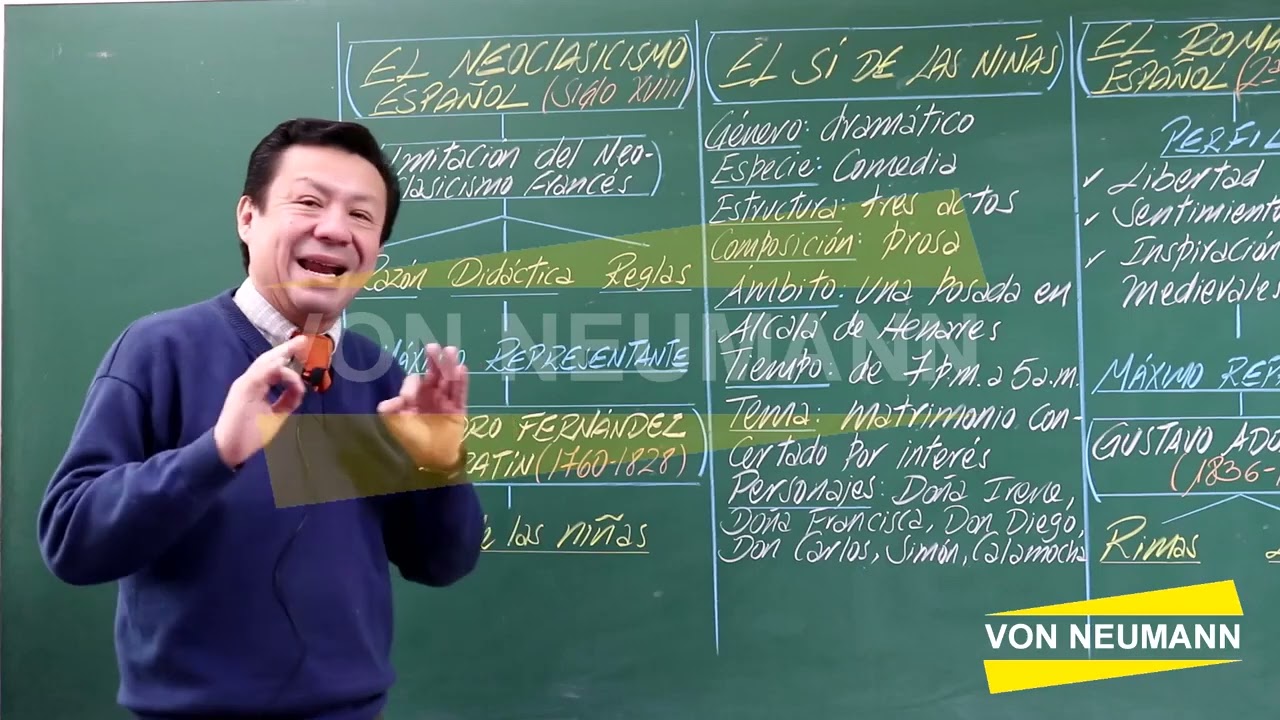 EL NEOCLASICISMO
ESPAÑOL (Siglo XVIII)
Imitacion del Neo-
clasicismo Francés
Razón Didáctica Reglas
MÁXIMO REPRESENTANTE
DRO FERNÁNDEZ
RATÍN (1760-1828)
de las niñas
EL SÍ DE LAS NIÑAS
Género: dramático
Especie: Comedia
Estructura: tres actos
Composición: prosa
Ámbito: Una Posada en
Alcalá de Henares
Tiempo: de 7 p.m. a 5 a.m.
Tema: matrimonio con-
certado por interés
Personajes: Doña Irene,
Doña Francisca, Don Diego,
Don Carlos, Simón, Calamocha
EL ROMA
ESPAÑOL (2
PERFIL
✓ Libertad
✓ Sentimient
✓ Inspiración
Medievales
MÁXIMO REP
GUSTAVO ADO
(1836-1
Rimas
VON NEUMANN
VON NEUMANN